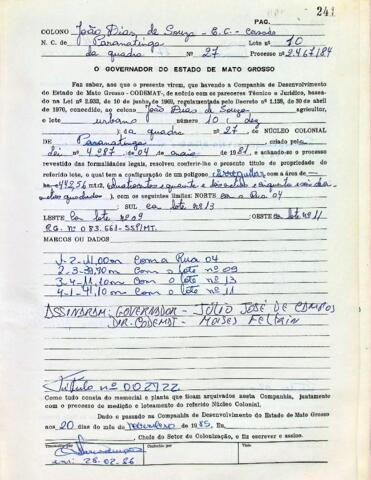 241
PAG.
COLONO João Dias de Souza - E.C. - Casado
N. C. de Paranatinga Lote nº 10
da quadra nº 27 Processo nº 2467/84
O GOVERNADOR DO ESTADO DE MATO GROSSO
Faz saber, aos que o presente virem, que havendo a Companhia de Desenvolvimento
do Estado de Mato Grosso -CODEMAT-, de acôrdo com os pareceres Técnico e Jurídico, basea-
do na Lei nº 2.933, de 10 de junho de 1969, regulamentada pelo Decreto nº 1.138, de 30 de abril
de 1970, concedido, ao colono João Dias de Souza agricultor,
o lote urbano número 10 (dez
) (da quadra nº 27 do NÚCLEO COLONIAL
DE Paranatinga criado pela
Lei nº 4.287 de 04 de maio de 1981, e achando-se o processo
revestido das formalidades legais, resolveu conferir-lhe o presente título de propriedade do
referido lote, o qual tem a configuração de um polígono irregular com a área de
442,56 m2,
metros quadrados), com os seguintes limites: NORTE com a Rua 04
SUL com lote nº 13
LESTE com lote nº 09 OESTE com lote nº 11
R.G. nº 083.661-SSP/MT.
MARCOS OU DADOS
1-2-11,00m com a Rua 04
2-3-39,40m com o lote nº 09
3-4-11,10m com o lote nº 13
4-1-41,10m com o lote nº 11
ASSINARAM: GOVERNADOR - JÚLIO JOSÉ DE CAMPOS
DIR. CODEMAT - MOISES FELTRIN
Título nº 002722
Como tudo consta do memorial e planta que ficam arquivados nesta Companhia, juntamente
com o processo de medição e loteamento do referido Núcleo Colonial.
Dado e passado na Companhia de Desenvolvimento do Estado de Mato Grosso
aos 20 dias do mês de 1985, Eu,
, Chefe do Setor de Colonização, o fiz escrever e assino.
Conferido por
em: 28-02-86